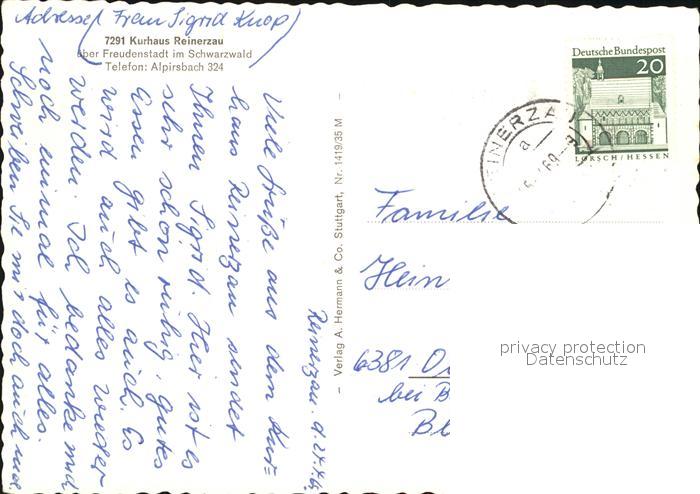 Adresse (Frau Sigrid Knop)
7291 Kurhaus Reinerzau
über Freudenstadt im Schwarzwald
Telefon: Alpirsbach 324
Reinerzau, d.
Viele Grüße aus dem Kur=
haus Reinerzau sendet
Ihnen Sigrid. Hier ist es
sehr schön ruhig. gutes
Essen gibt es auch. Es
wird auch alles wieder
werden. Ich bedanke mich
noch einmal für alles.
Schreiben Sie mir doch auch mal.
– Verlag A. Hermann & Co. Stuttgart, Nr. 1419/35 M –
Deutsche Bundespost
20
LORSCH/HESSEN
REINERZAU
a
Familie
Hein
6381
bei B
privacy protection
Datenschutz